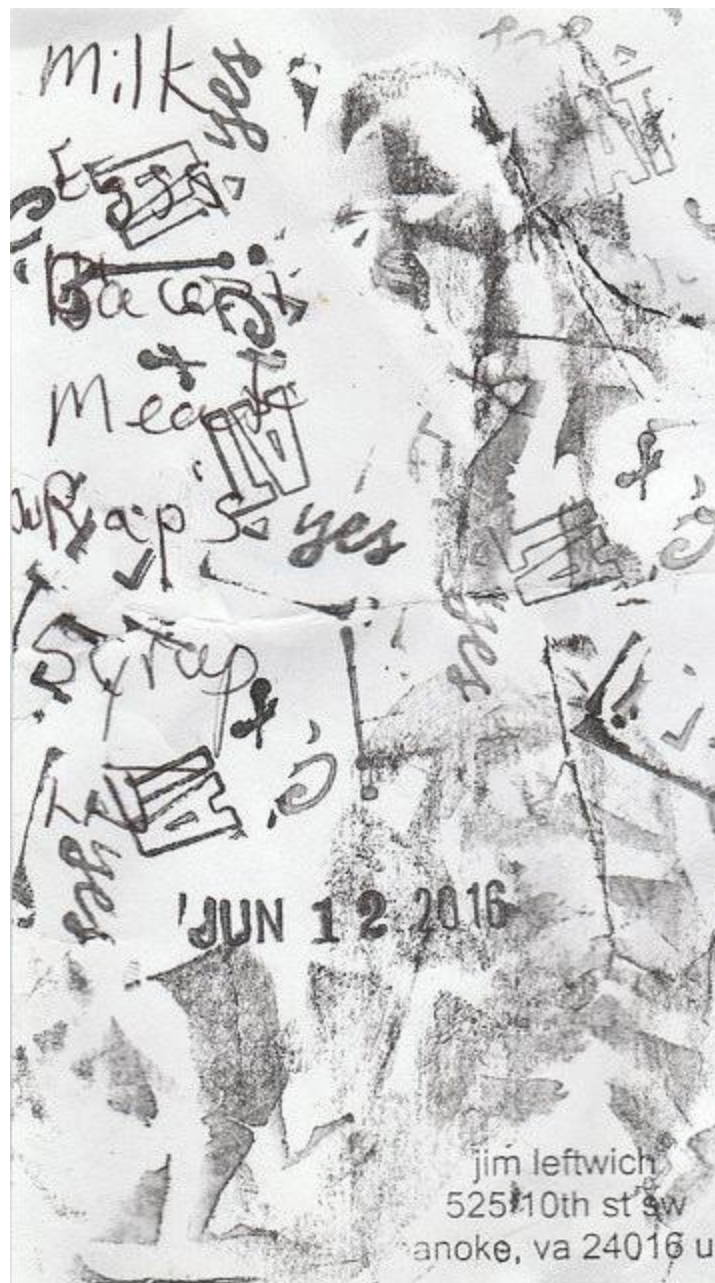 milk
yes
Eggs
Bacon
Meat
wRap's
yes
Syrup
yes
yes
JUN 12 2016
jim leftwich
525 10th st sw
anoke, va 24016 u